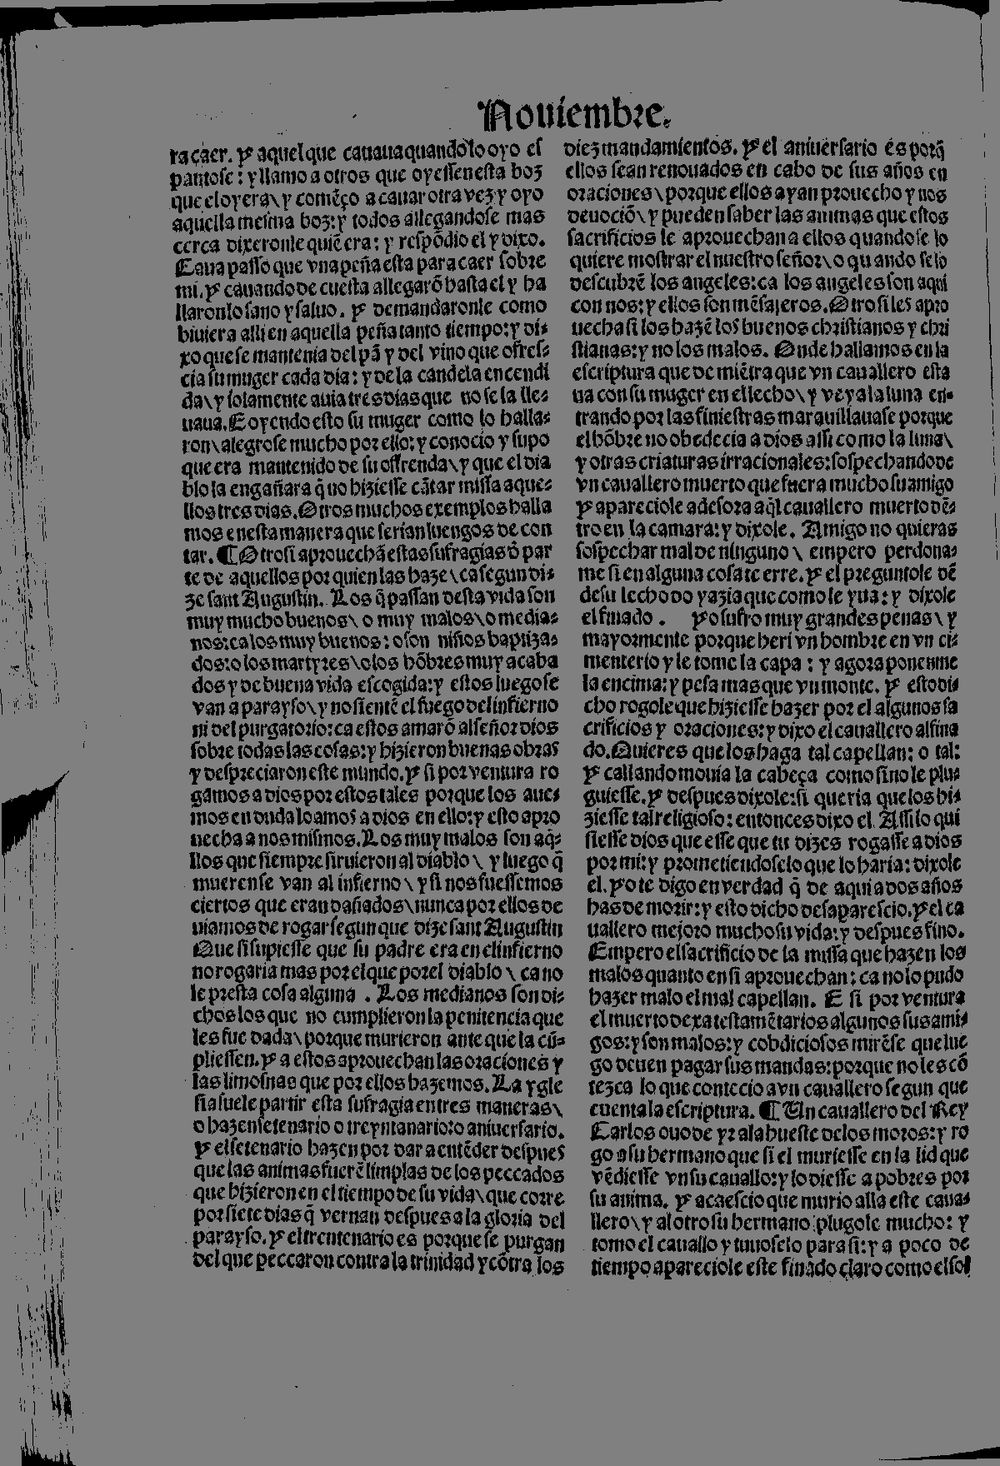 Nouiembre.
ra caer. y aquel que cauaua quando lo oyo es
pantose: y llamo a otros que oyessen esta boz
que el oyera\ y comẽço a cauar otra vez y oyo
aquella mesma boz: y todos allegandose mas
cerca dixeronle quiẽ era: y respõdio el y dixo.
Caua passo que vna peña esta para caer sobre
mi. y cauando de cuesta allegarõ hasta el y ha
llaronlo sano y saluo. y demandaronle como
biuiera alli en aquella peña tanto tiempo: y di-
xo que se mantenia del pã y del vino que ofres-
cia su muger cada dia: y de la candela encendi
da\ y solamente auia tres dias que no se la lle-
uaua. E oyendo esto su muger como lo halla-
ron\ alegrose mucho por ello: y conocio y supo
que era mantenido de su offrenda\ y que el dia
blo la engañara q̃ no hiziesse cãtar missa aque-
llos tres dias. Otros muchos exemplos halla
mos en esta manera que serian luengos de con
tar. ¶ Otrosi aprouechã estas sufragias õ par
te de aquellos por quien las haze\ ca segun di-
ze sant Augustin. Los q̃ passan desta vida son
muy mucho buenos\ o muy malos\ o media-
nos: ca los muy buenos: o son niños baptiza-
dos: o los martyres\ o los hõbres muy acaba
dos y de buena vida escogida: y estos luego se
van a parayso\ y no sientẽ el fuego del infierno
ni del purgatorio: ca estos amarõ al señor dios
sobre todas las cosas: y hizieron buenas obras
y despreciaron este mundo. y si por ventura ro
gamos a dios por estos tales porque los aue-
mos en duda loamos a dios en ello: y esto apro
uecha a nos mismos. Los muy malos son aq̃-
llos que siempre siruieron al diablo\ y luego q̃
muerense van al infierno\ y si nos fuessemos
ciertos que eran dañados\ nunca por ellos de
uiamos de rogar segun que dize sant Augustin
Que si supiesse que su padre era en el infierno
no rogaria mas por el que por el diablo\ ca no
le presta cosa alguna. Los medianos son di-
chos los que no cumplieron la penitencia que
les fue dada\ porque murieron ante que la cũ-
pliessen. y a estos aprouechan las oraciones y
las limosnas que por ellos hazemos. La ygle
sia suele partir esta sufragia en tres maneras\
o hazen setenario o treyntanario: o aniuersario.
y el setenario hazen por dar a entẽder despues
que las animas fuerẽ limpias de los peccados
que hizieron en el tiempo de su vida\ que corre
por siete dias q̃ vernan despues a la gloria del
parayso. y el trentenario es porque se purgan
del que peccaron contra la trinidad y cõtra los
diez mandamientos. y el aniuersario es porq̃
ellos sean renouados en cabo de sus años en
oraciones\ porque ellos ayan prouecho y nos
deuociõ\ y pueden saber las animas que estos
sacrificios le aprouechan a ellos quando se lo
quiere mostrar el nuestro señor\ o quando se lo
descubrẽ los angeles: ca los angeles son aqui
con nos: y ellos son mẽsajeros. Otrosi les apro
uecha si los hazẽ los buenos christianos y chri
stianas: y no los malos. Onde hallamos en la
escriptura que de miẽtra que vn cauallero esta
ua con su muger en el lecho\ y veya la luna en-
trando por las finiestras marauillauase porque
el hõbre no obedecia a dios assi como la luna\
y otras criaturas irracionales: sospechando de
vn cauallero muerto que fuera mucho su amigo
y apareciole adesora aq̃l cauallero muerto dẽ-
tro en la camara: y dixole. Amigo no quieras
sospechar mal de ninguno\ empero perdona-
me si en alguna cosa te erre. y el preguntole dẽ
de su lecho do yazia que como le yua: y dixole
el finado. Yo sufro muy grandes penas\ y
mayormente porque heri vn hombre en vn ci-
menterio y le tome la capa: y agora ponenme
la encima: y pesa mas que vn monte. y esto di-
cho rogole que hiziesse hazer por el algunos sa
crificios y oraciones: y dixo el cauallero al fina
do. Quieres que los haga tal capellan: o tal:
y callando mouia la cabeça como si no le plu-
guiesse. y despues dixole: si queria que los hi-
ziesse tal religioso: entonces dixo el. Assi lo qui
siesse dios que esse que tu dizes rogasse a dios
por mi: y prometiendoselo que lo haria: dixole
el. yo te digo en verdad q̃ de aqui a dos años
has de morir: y esto dicho desaparescio. y el ca
uallero mejoro mucho su vida: y despues fino.
Empero el sacrificio de la missa que hazen los
malos quanto en si aprouechan: ca no lo pudo
hazer malo el mal capellan. E si por ventura
el muerto dexa testamẽtarios algunos sus ami-
gos: y son malos: y cobdiciosos mirẽse que lue
go deuen pagar sus mandas: porque no les cõ
tezca lo que contecio a vn cauallero segun que
cuenta la escriptura. ¶ Un cauallero del Rey
Carlos ouo de yr a la hueste de los moros: y ro
go a su hermano que si el muriesse en la lid que
vẽdiesse vn su cauallo: y lo diesse a pobres por
su anima. y acaescio que murio alla este caua-
llero\ y al otro su hermano plugole mucho: y
tomo el cauallo y tuuoselo para si: y a poco de
tiempo apareciole este finado claro como el sol